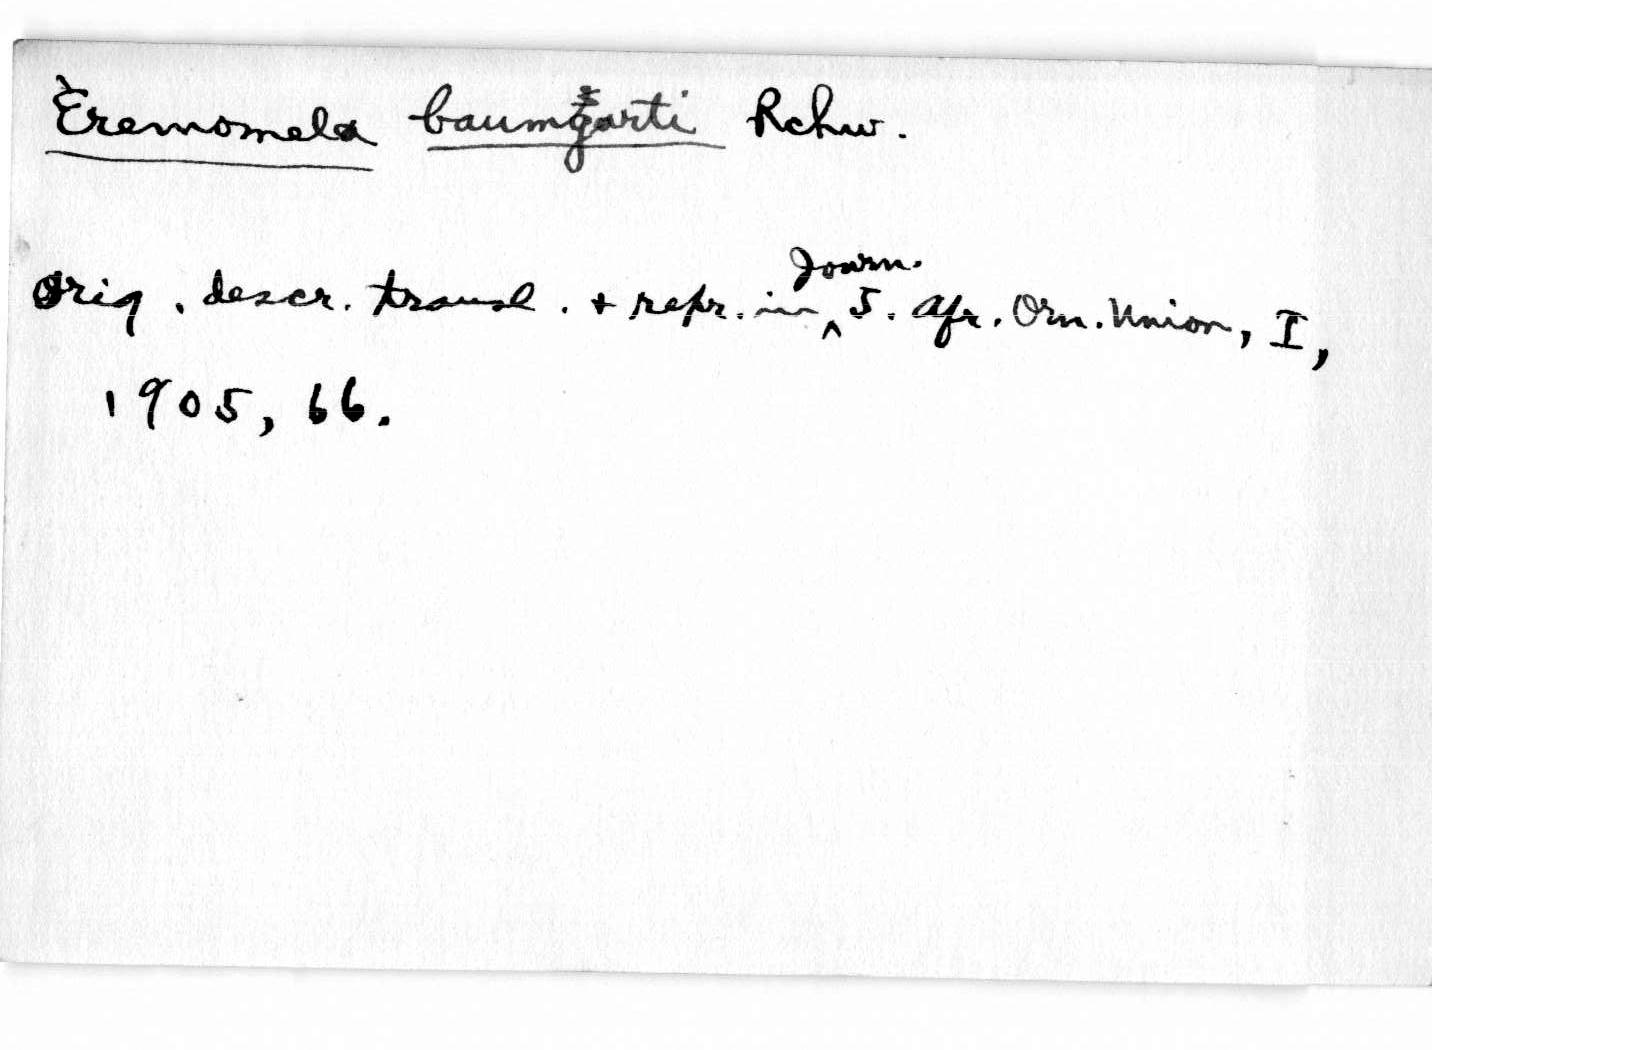 Eremomela baumgarti Rchw.
Orig. descr. transl. + repr. in ^ Journ. S. Afr. Orn. Union, I,
1905, 66.